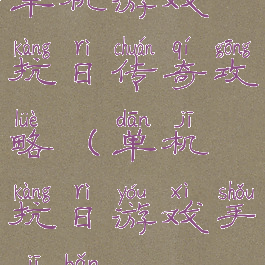 单机游戏
kàng rì chuán qí gōng
抗日传奇攻
luè dān jī
略（单机
kàng rì yóu xì shǒu
抗日游戏手
jī bǎn